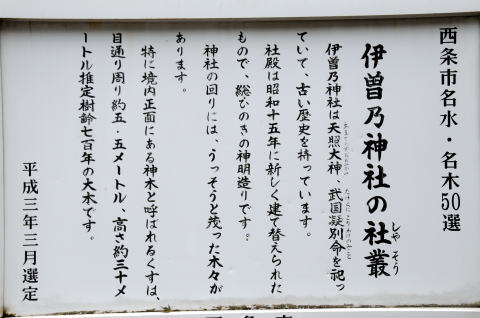 西条市名水・名木50選
伊曽乃神社の社叢
しゃそう
伊曽乃神社は天照大神 武国凝別命を祀っ
ていて、古い歴史を持っています。
社殿は昭和十五年に新しく建て替えられた
もので、総ひのきの神明造りです。
神社の回りには、うっそうと茂った木々が
あります。
特に境内正面にある神木と呼ばれるくすは、
目通り周り約五・五メートル、高さ約三十メ
ートル推定樹齢七百年の大木です。
平成三年三月選定